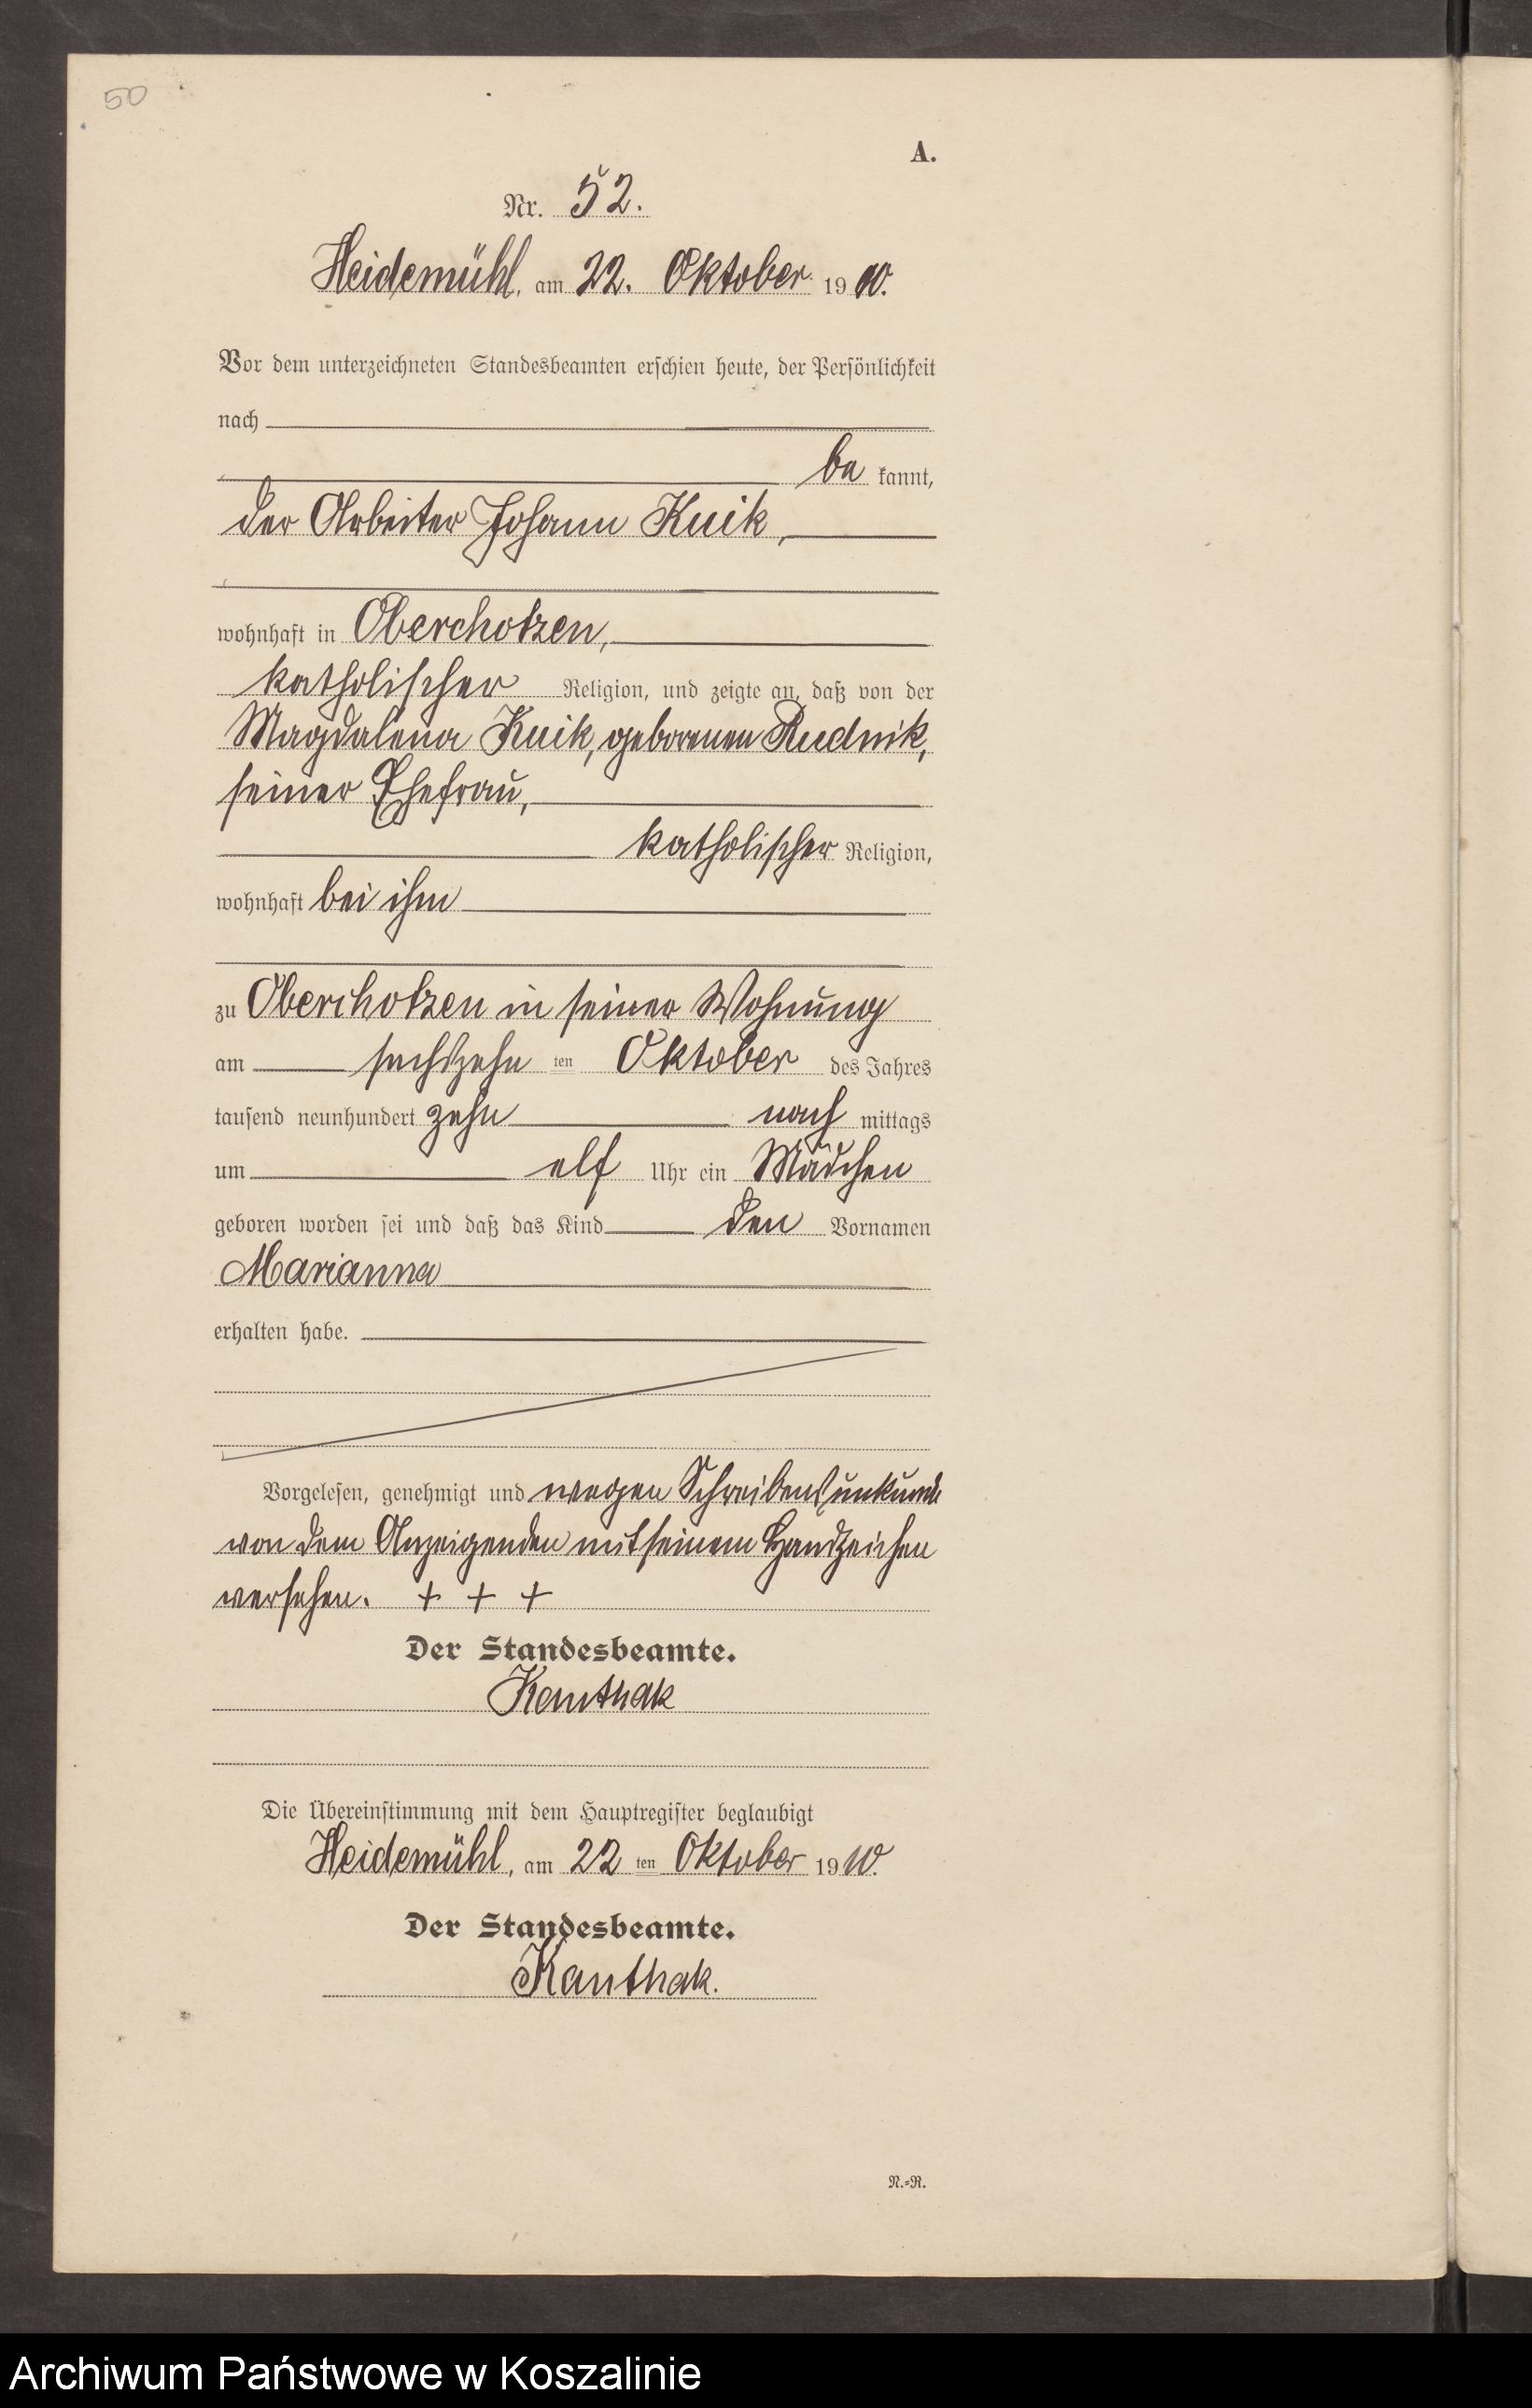 50
A.
Nr. 52.
Heidemühl, am 22. Oktober 1910.
Vor dem unterzeichneten Standesbeamten erschien heute, der Persönlichkeit
nach
be kannt,
der Arbeiter Johann Kuik,
wohnhaft in Oberchotzen,
katholischer Religion, und zeigte an, daß von der
Magdalena Kuik, geborenen Rudnik,
seiner Ehefrau,
katholischer Religion,
wohnhaft bei ihm
zu Oberchotzen in seiner Wohnung
am sechszehn ten Oktober des Jahres
tausend neunhundert zehn nach mittags
um elf Uhr ein Mädchen
geboren worden sei und daß das Kind den Vornamen
Marianna
erhalten habe.
Vorgelesen, genehmigt und wegen Schreibensunkunde
von dem Anzeigenden mit seinem Handzeichen
versehen. + + +
Der Standesbeamte.
Kanthak
Die Übereinstimmung mit dem Hauptregister beglaubigt
Heidemühl, am 22 ten Oktober 1910.
Der Standesbeamte.
Kanthak.
N.=R.
Archiwum Państwowe w Koszalinie